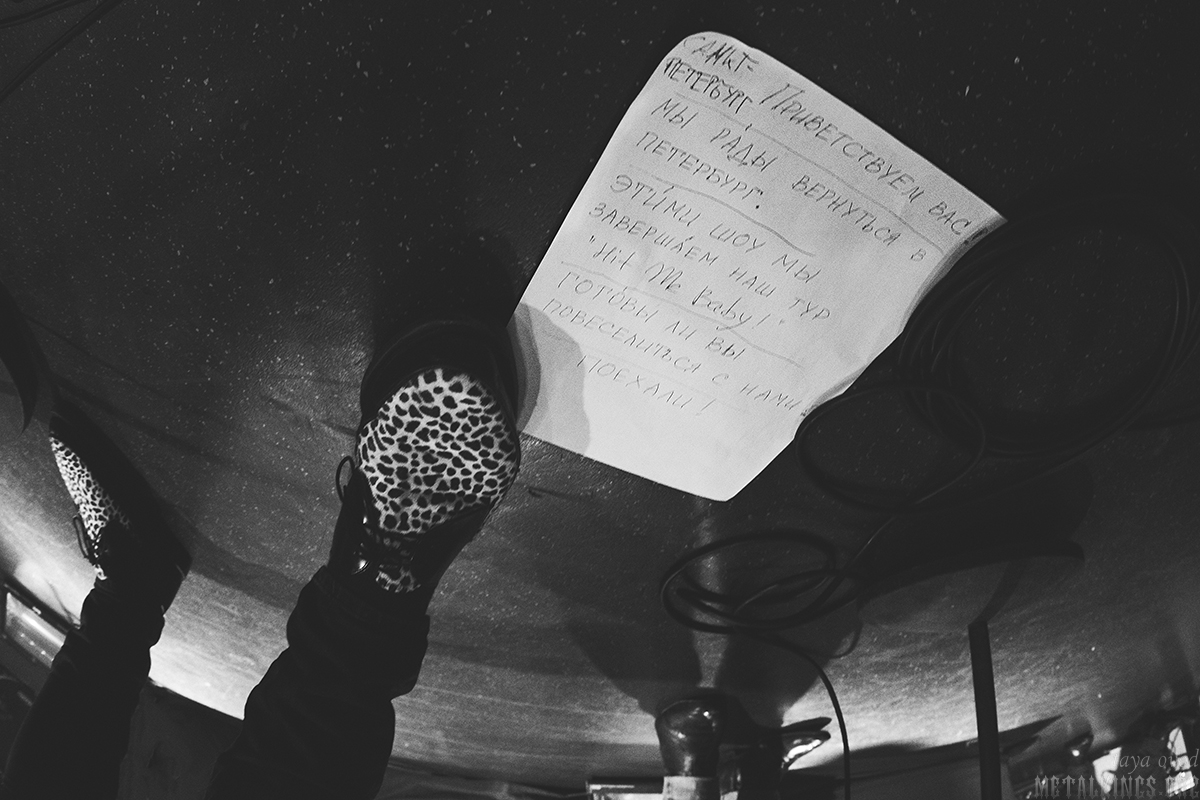 САНКТ-
ПЕТЕРБУРГ, ПРИВЕТСТВУЕМ ВАС!
МЫ РАДЫ ВЕРНУТЬСЯ В
ПЕТЕРБУРГ.
ЭТИМИ ШОУ МЫ
ЗАВЕРШАЕМ НАШ ТУР
"Hit Me Baby!"
ГОТОВЫ ЛИ ВЫ
ПОВЕСЕЛИТЬСЯ С НАМИ?
ПОЕХАЛИ!
METALKINGS.ORG